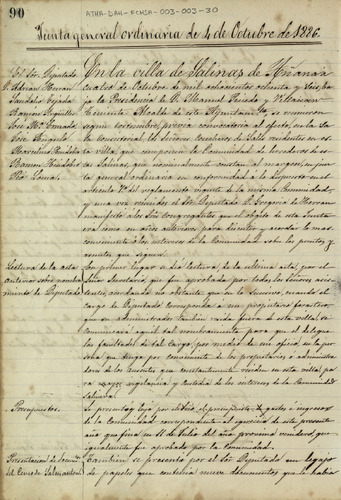 90
ATHA-DAH-FCMSA-003-003-30
Junta general ordinaria de 4 de Octubre de 1886.
El Sor. Diputado
D. Adrian Herran
Candido Tejada
Ramon
José Ma.
José Angulo
Marcelino
Ramon
Pio
En la villa de Salinas de Añana á
cuatro de Octubre de mil ochocientos ochenta y seis, ba-
jo la Presidencia de D. Manuel Pareda y
Alcalde de este Ayuntamiento, se reunieron
segun costumbre, previa convocatoria al efecto, en la Sa-
la consistorial los Señores dueños de Salle residentes en es-
ta villa, que componen la Comunidad de herederos de es-
tas Salinas, que nominalmente constan al margen, en jun-
ta general ordinaria en conformidad á lo dispuesto en el
articulo 7º del reglamento vigente de la misma Comunidad,
y una vez reunidos el Sor. Diputado D. Gregorio de Herran
manifestó á los Sres. congregantes que el objeto de esta Junta
era como en años anteriores para discutir y acordar lo mas
conveniente á los intereses de la Comunidad sobre los puntos y
asuntos que siguen.
Lectura de la acta
anterior sobre nombra-
miento de Diputado
En primer lugar se dió lectura, de la ultima acta, por el
Señor Secretario, que fue aprobada por todos los Señores asis-
tentes, acordando no obstante que en lo sucesivo, cuando el
cargo de Diputado corresponda á un propietario forastero,
que su administrador tambien resida fuera de esta villa, se
comunicará á aquél tal nombramiento para que él delegue
las facultades de tal cargo, por medio de un oficio en la per-
sona que tenga por conveniente de los propietarios ó administra-
dores de los ausentes que constantemente residen en esta villa, pa-
ra mayor vigilancia y custodia de los intereses de la Comunidad
salinera.
Presupuestos.
Se presentó y leyó por dicho Sor. el presupuesto de gastos é ingresos
de la Comunidad correspondiente al ejercicio de este presente
año que finará en 11 de Julio del año proximo venidero, que
igualmente fue aprobado por la Comunidad.
Presentacion de docum.
del Censo de Salinas
Tambien se presentó por el Sor. Diputado un legajo
de papeles que contenia nueve documentos que le habia